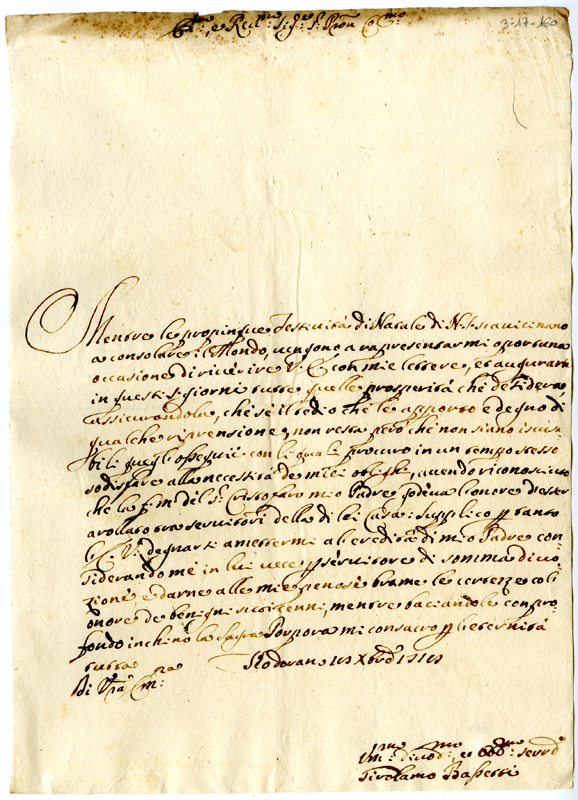 3-17-160
Em.mo, e Rev.mo Sig.re S.r Pron Col.mo
Mentre le propinque festività di Natale di N. S. s'avvicinano
a consolare il Mondo, vengono a rapresentarmi oportuna
occasione di riverire V. E. con mie lettere, et augurarle
in questi S. giorni tutte quelle prosperità che desidera,
assicurandola, che se il tedio che le apporto è degno di
qualche riprensione, non resta però che non siano iscusa
bili quegli ossequii con li quali procuro in un tempo stesso
sodisfare alla necessità de miei oblighi, avendo riconosciuto
che la f. m. del S. Cristofaro mio Padre godeva l'onore d'esser
arollato tra servitori della di lei Casa: supplico p tanto
V. degnarsi amettermi al eredità di mio Padre con
siderando me in lui vece p servitore di somma divo
zione, e darne alle mie penose brame le certezze col
onore de benigni suoi cenni, mentre baciandole con pro
fondo inchino la Sagra Porpora mi consacro p l'eternità
tutta
Di V.ra Em.za
Xbre
Um.mo divot.mo et Obb.mo serv.re
Girolamo